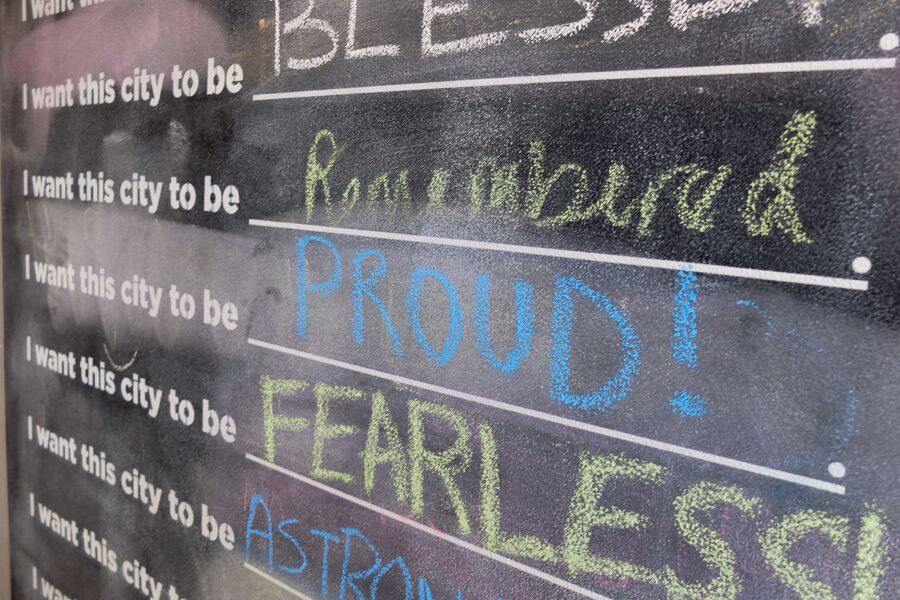 I want this
I want this city to be BLESSED.
I want this city to be Remembered.
I want this city to be PROUD!.
I want this city to be FEARLESS!
I want this city to be ASTRON
I want this city
I want